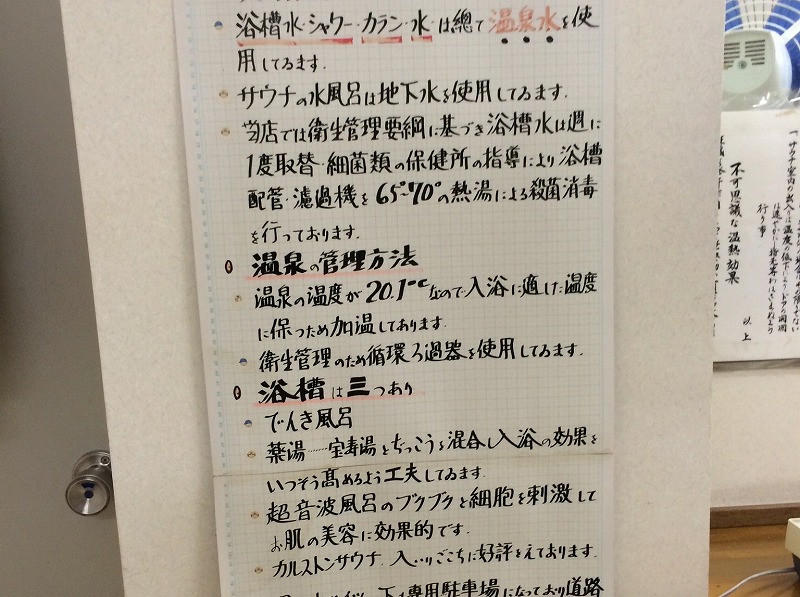 浴槽水・シャワー・カラン・水・は總て温泉水を使
用してゐます.
サウナの水風呂は地下水を使用してゐます.
当店では衛生管理要綱に基づき浴槽水は週に
1度取替・細菌類の保健所の指導により浴槽
配管・濾過機を65°~70°の熱湯による殺菌消毒
を行っております.
温泉の管理方法
温泉の温度が20.1℃なので入浴に適した温度
に保つため加温しております.
衛生管理のため循環ろ過器を使用してゐます.
浴槽は三つあり
でんき風呂
薬湯……宝寿湯とぢっこうを混合し入浴の効果を
いつそう髙めるよう工夫してゐます.
超音波風呂のブクブクと細胞を刺激して
お肌の美容に効果的です.
カルストンサウナ. 入いりごこちに好評をえております.
下は専用駐車場になっており道路
「サウナ室内の出入りは温度の低下によりドアの開閉
は速やかに
行う事
不可思議な温熱効果
以上